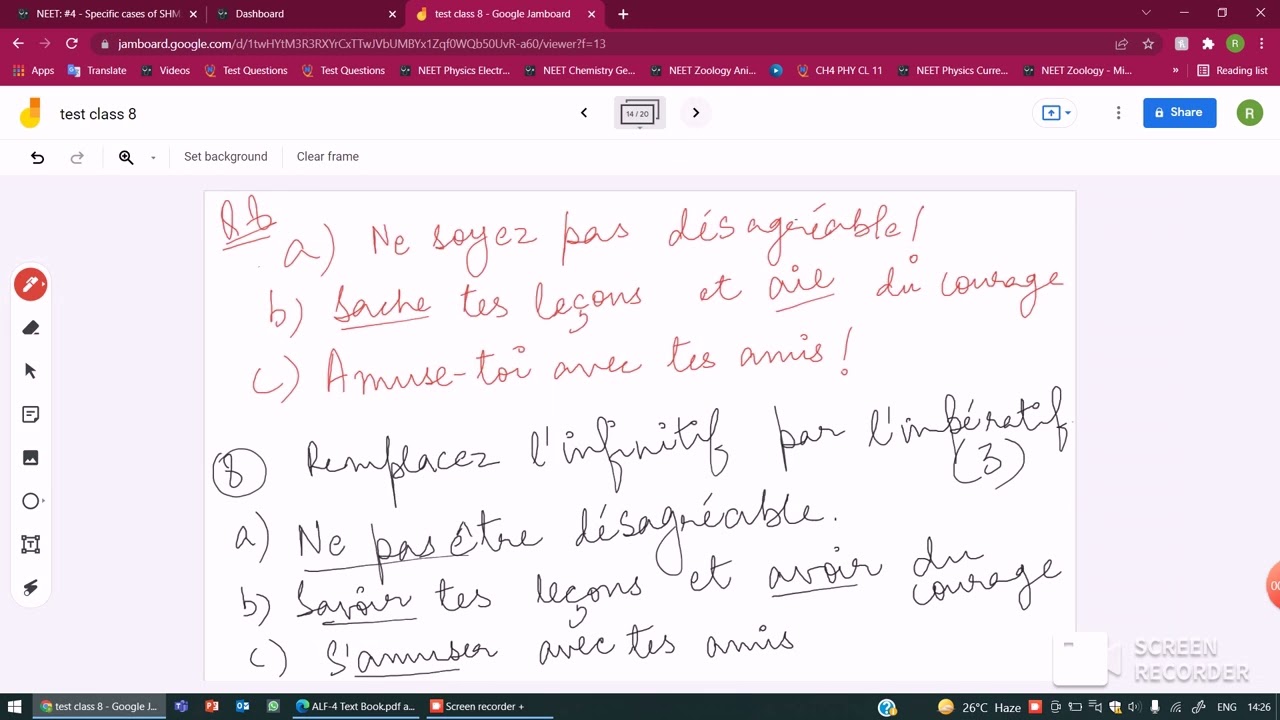 NEET: #4 - Specific cases of SHM
Dashboard
test class 8 - Google Jamboard
jamboard.google.com/d/1twHYtM3R3RXYrCxTTwJVbUMBYx1Zqf0WQb50UvR-a60/viewer?f=13
Apps
Translate
Videos
Test Questions
Test Questions
NEET Physics Electr...
NEET Chemistry Ge...
NEET Zoology Ani...
CH4 PHY CL 11
NEET Physics Curre...
NEET Zoology - Mi...
»
Reading list
test class 8
14 / 20
Share
R
Set background
Clear frame
a) Ne soyez pas désagréable!
b) Sache tes leçons et aie du courage
c) Amuse-toi avec tes amis!
8 Remplacez l'infinitif par l'impératif
(3)
a) Ne pas être désagréable.
b) Savoir tes leçons et avoir du
courage
c) S'amuser avec tes amis
SCREEN
RECORDER
test class 8 - Google J...
ALF-4 Text Book.pdf a...
Screen recorder +
26°C Haze
ENG
14:26